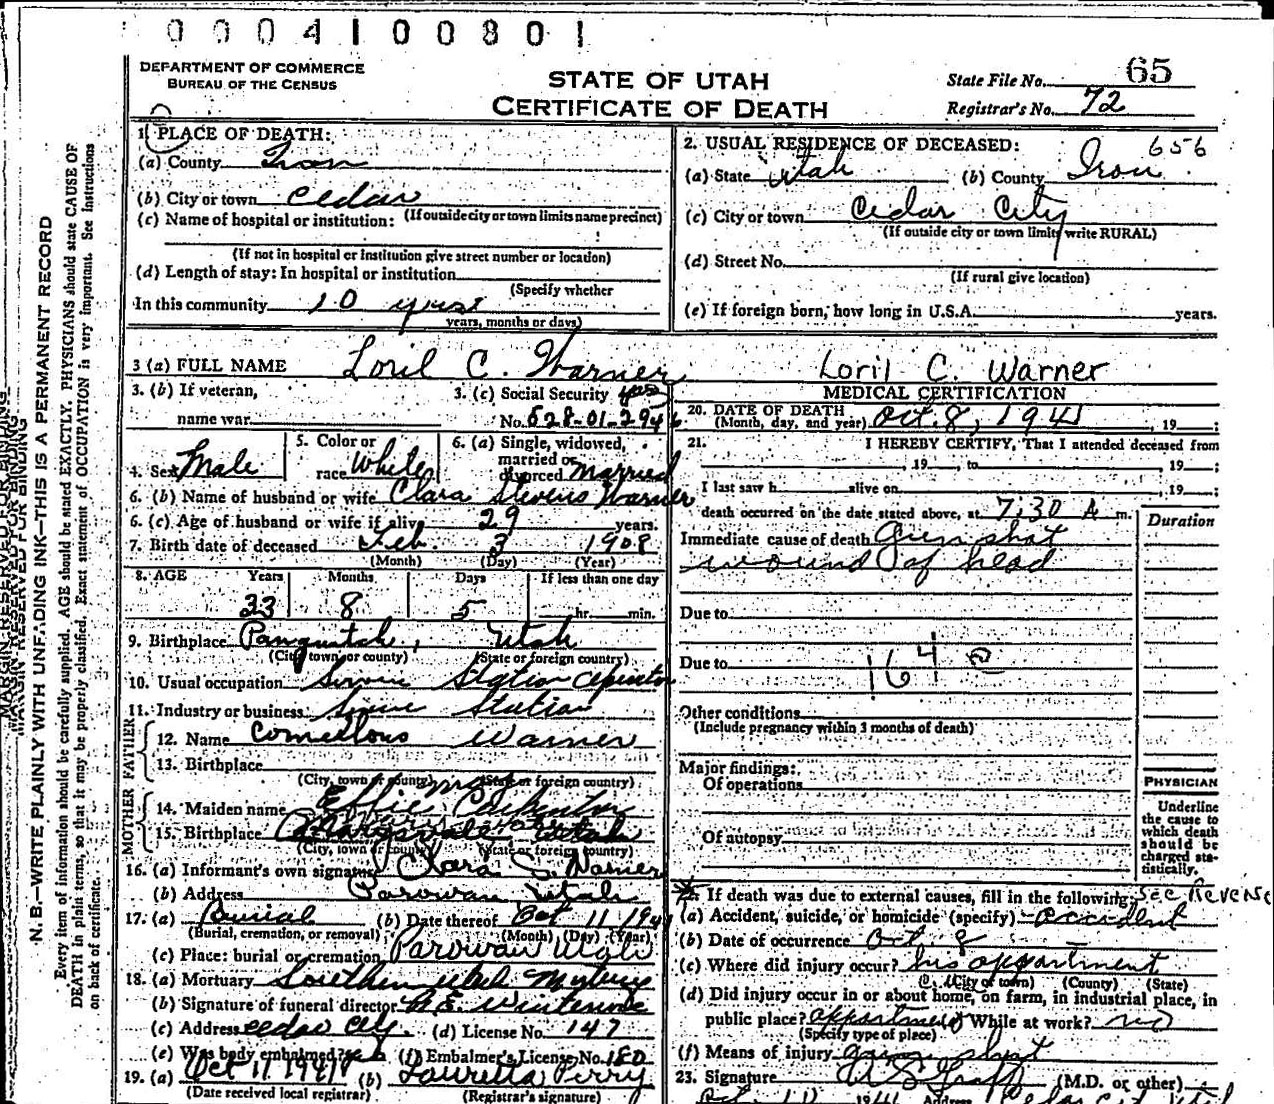 0004100801
DEPARTMENT OF COMMERCE
BUREAU OF THE CENSUS
STATE OF UTAH
CERTIFICATE OF DEATH
State File No. 65
Registrar's No. 72
1. PLACE OF DEATH:
(a) County Iron
(b) City or town Cedar
(c) Name of hospital or institution: (If outside city or town limits name precinct)
(If not in hospital or institution give street number or location)
(d) Length of stay: In hospital or institution
(Specify whether
In this community 10 years
years, months or days)
2. USUAL RESIDENCE OF DECEASED: 656
(a) State Utah (b) County Iron
(c) City or town Cedar City
(If outside city or town limits write RURAL)
(d) Street No.
(If rural give location)
(e) If foreign born, how long in U.S.A. years.
3 (a) FULL NAME Loril C. Warner Loril C. Warner
3. (b) If veteran,
name war
3. (c) Social Security yes
No. 528-01-2946
4. Sex Male
5. Color or
race White
6. (a) Single, widowed,
married or
divorced married
6. (b) Name of husband or wife Clara Stevens Warner
6. (c) Age of husband or wife if alive 29 years.
7. Birth date of deceased Feb. 3 1908
(Month) (Day) (Year)
8. AGE Years Months Days If less than one day
33 8 5 hr. min.
9. Birthplace Panguitch, Utah
(City, town or county) (State or foreign country)
10. Usual occupation Service Station Operator
11. Industry or business Service Station
FATHER
12. Name Warner
13. Birthplace
(City, town or county) (State or foreign country)
MOTHER
14. Maiden name Effie
15. Birthplace Marysvale Utah
(City, town or county) (State or foreign country)
16. (a) Informant's own signature Clara S. Warner
(b) Address Parowan Utah
17. (a) Burial (b) Date thereof Oct 11 1941
(Burial, cremation, or removal) (Month) (Day) (Year)
(c) Place: burial or cremation Parowan Utah
18. (a) Mortuary Southern Utah Mortuary
(b) Signature of funeral director
(c) Address Cedar City. (d) License No. 147
(e) Was body embalmed? yes (f) Embalmer's License No. 180
19. (a) Oct 11 1941 (b) Lauretta Perry
(Date received local registrar) (Registrar's signature)
MEDICAL CERTIFICATION
20. DATE OF DEATH
(Month, day, and year) Oct. 8, 1941, 19 ;
21. I HEREBY CERTIFY, That I attended deceased from
, 19 , to , 19 ;
I last saw h alive on , 19 ;
death occurred on the date stated above, at 7:30 A m.
Duration
Immediate cause of death Gun shot
wound of head
Due to
Due to
164
Other conditions
(Include pregnancy within 3 months of death)
Major findings:
Of operations
Of autopsy
PHYSICIAN
Underline
the cause to
which death
should be
charged sta-
tistically.
22. If death was due to external causes, fill in the following: See Reverse
(a) Accident, suicide, or homicide (specify) accident
(b) Date of occurrence Oct 8
(c) Where did injury occur? his appartment
(City or town) (County) (State)
(d) Did injury occur in or about home, on farm, in industrial place, in
public place? appartment While at work? no
(Specify type of place)
(f) Means of injury gun shot
23. Signature (M.D. or other)
1941 Address Cedar City Utah
N. B.—WRITE PLAINLY WITH UNFADING INK—THIS IS A PERMANENT RECORD
Every item of information should be carefully supplied. AGE should be stated EXACTLY. PHYSICIANS should state CAUSE OF
DEATH in plain terms, so that it may be properly classified. Exact statement of OCCUPATION is very important. See instructions
on back of certificate.
MARGIN RESERVED FOR BINDING